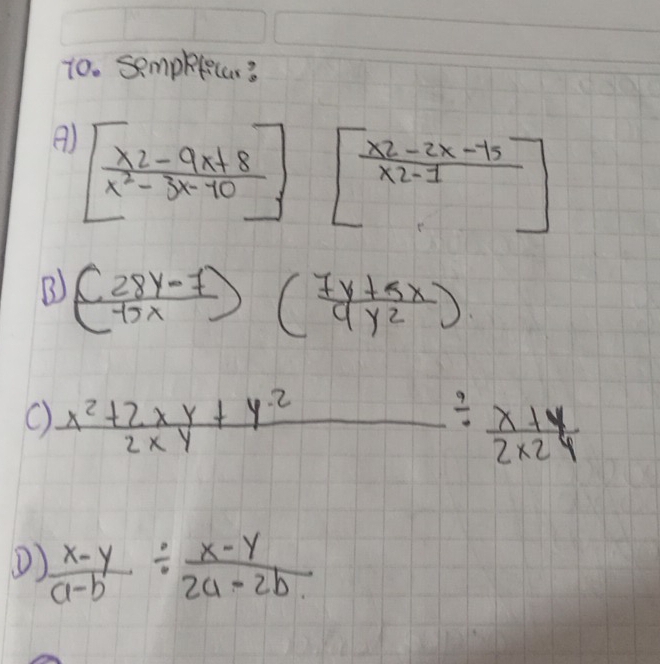 10. Simplificar:
A) [x2 - 9x + 8 / x² - 3x - 10] [x2 - 2x - 15 / x2 - 1]
B) (28y - 7 / 15x) (7y + 5x / 9y2).
C) x² + 2xy + y2 / 2xy ÷ x + y / 2x2y
D) x - y / a - b ÷ x - y / 2a - 2b.